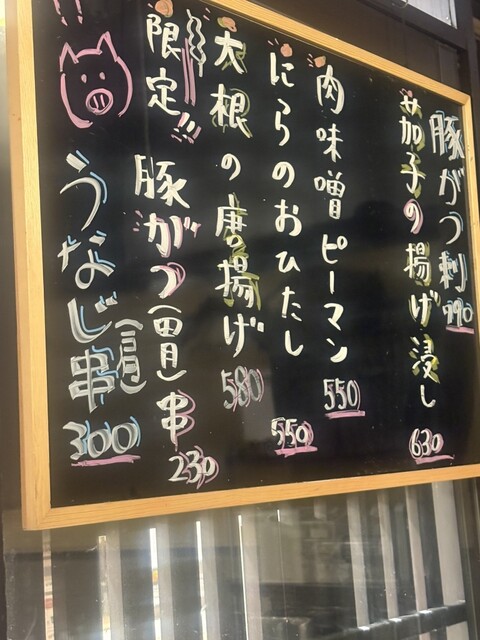 豚がつ刺 990
茄子の揚げ浸し 630
肉味噌ピーマン 550
にらのおひたし 550
大根の唐揚げ 580
限定!!!
豚がつ(胃)串 230
うなじ串 300